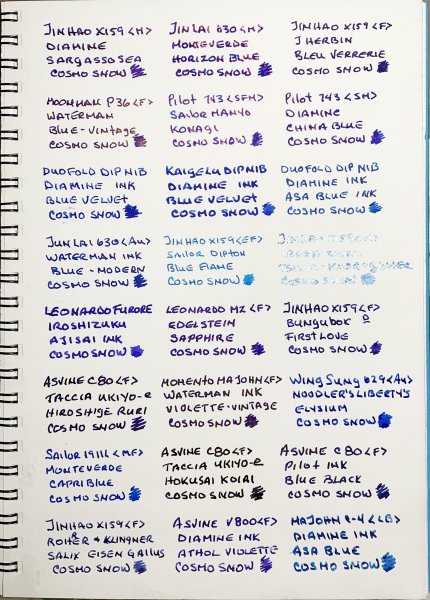 JINHAO X159 <M>
DIAMINE
SARGASSO SEA
COSMO SNOW
JINLAI 630 <M>
MONTEVERDE
HORIZON BLUE
COSMO SNOW
JINHAO X159 <F>
J HERBIN
BLEU VERRERIE
COSMO SNOW
MOONMAN P36 <F>
WATERMAN
BLUE-VINTAGE
COSMO SNOW
PILOT 743 <SFM>
SAILOR MANYO
KONAGI
COSMO SNOW
PILOT 743 <SM>
DIAMINE
CHINA BLUE
COSMO SNOW
DUOFOLD DIP NIB
DIAMINE INK
BLUE VELVET
COSMO SNOW
KAIGELU DIP NIB
DIAMINE INK
BLUE VELVET
COSMO SNOW
DUOFOLD DIP NIB
DIAMINE INK
ASA BLUE INK
COSMO SNOW
JUNLAI 630 <AU>
WATERMAN INK
BLUE-MODERN
COSMO SNOW
JINHAO X159 <EF>
SAILOR DIPTON
BLUE FLAME
COSMO SNOW
COSMO SNOW
LEONARDO FURORE
IROSHIZUKU
AJISAI INK
COSMO SNOW
LEONARDO MZ <F>
EDELSTEIN
SAPPHIRE
COSMO SNOW
JINHAO X159 <F>
BUNGUBOX
FIRST LOVE
COSMO SNOW
ASVINE C80 <F>
TACCIA UKIYO-E
HIROSHIGE RURI
COSMO SNOW
MOMENTO MAJOHN <F>
WATERMAN INK
VIOLETTE-VINTAGE
COSMO SNOW
WING SUNG 629 <AU>
NOODLER'S LIBERTY'S
ELYSIUM
COSMO SNOW
SAILOR 1911L <MF>
MONTEVERDE
CAPRI BLUE
COSMO SNOW
ASVINE C80 <F>
TACCIA UKIYO-E
HOKUSAI KOIAI
COSMO SNOW
ASVINE C80 <F>
PILOT INK
BLUE BLACK
COSMO SNOW
JINHAO X159 <F>
ROHRER & KLINGNER
SALIX EISEN GALLUS
COSMO SNOW
ASVINE V800 <F>
DIAMINE INK
ATHOL VIOLETTE
COSMO SNOW
MAJOHN <LB>
DIAMINE INK
ASA BLUE
COSMO SNOW